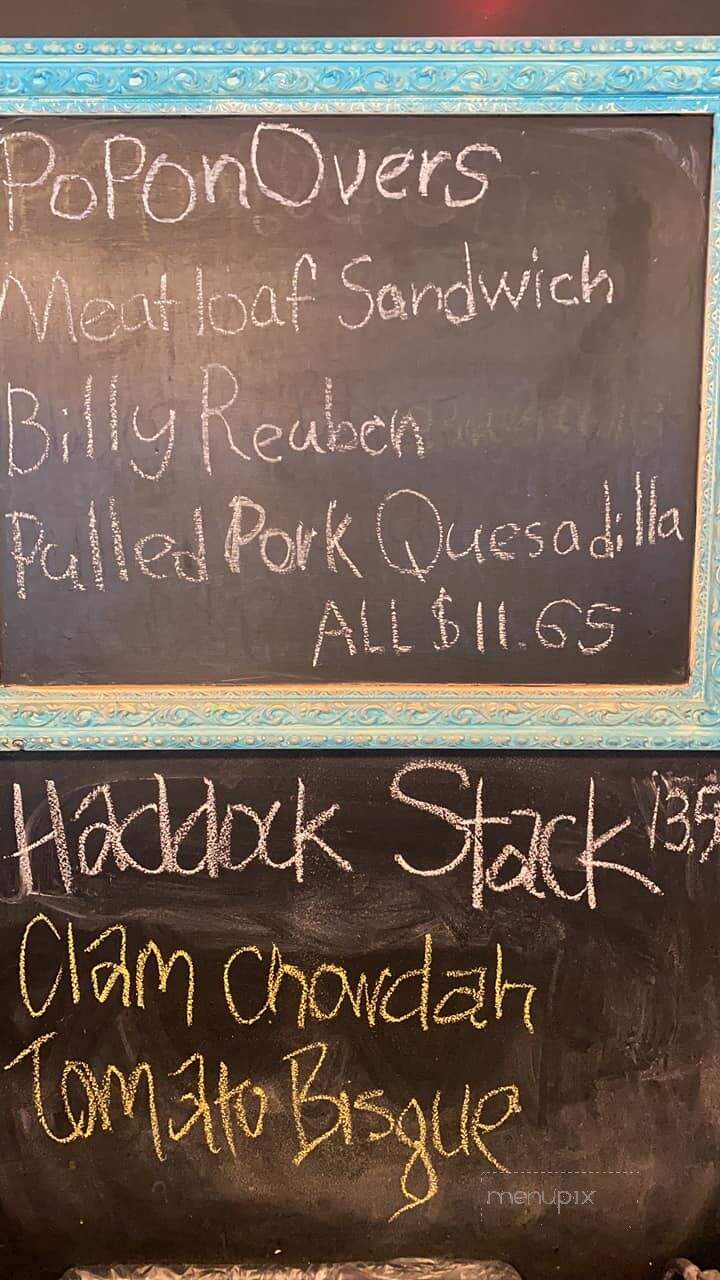 PoPonOvers
Meatloaf Sandwich
Billy Reuben
Pulled Pork Quesadilla
ALL $11.65
Haddock Stack
Clam Chowdah
Tomato Bisque
menupix